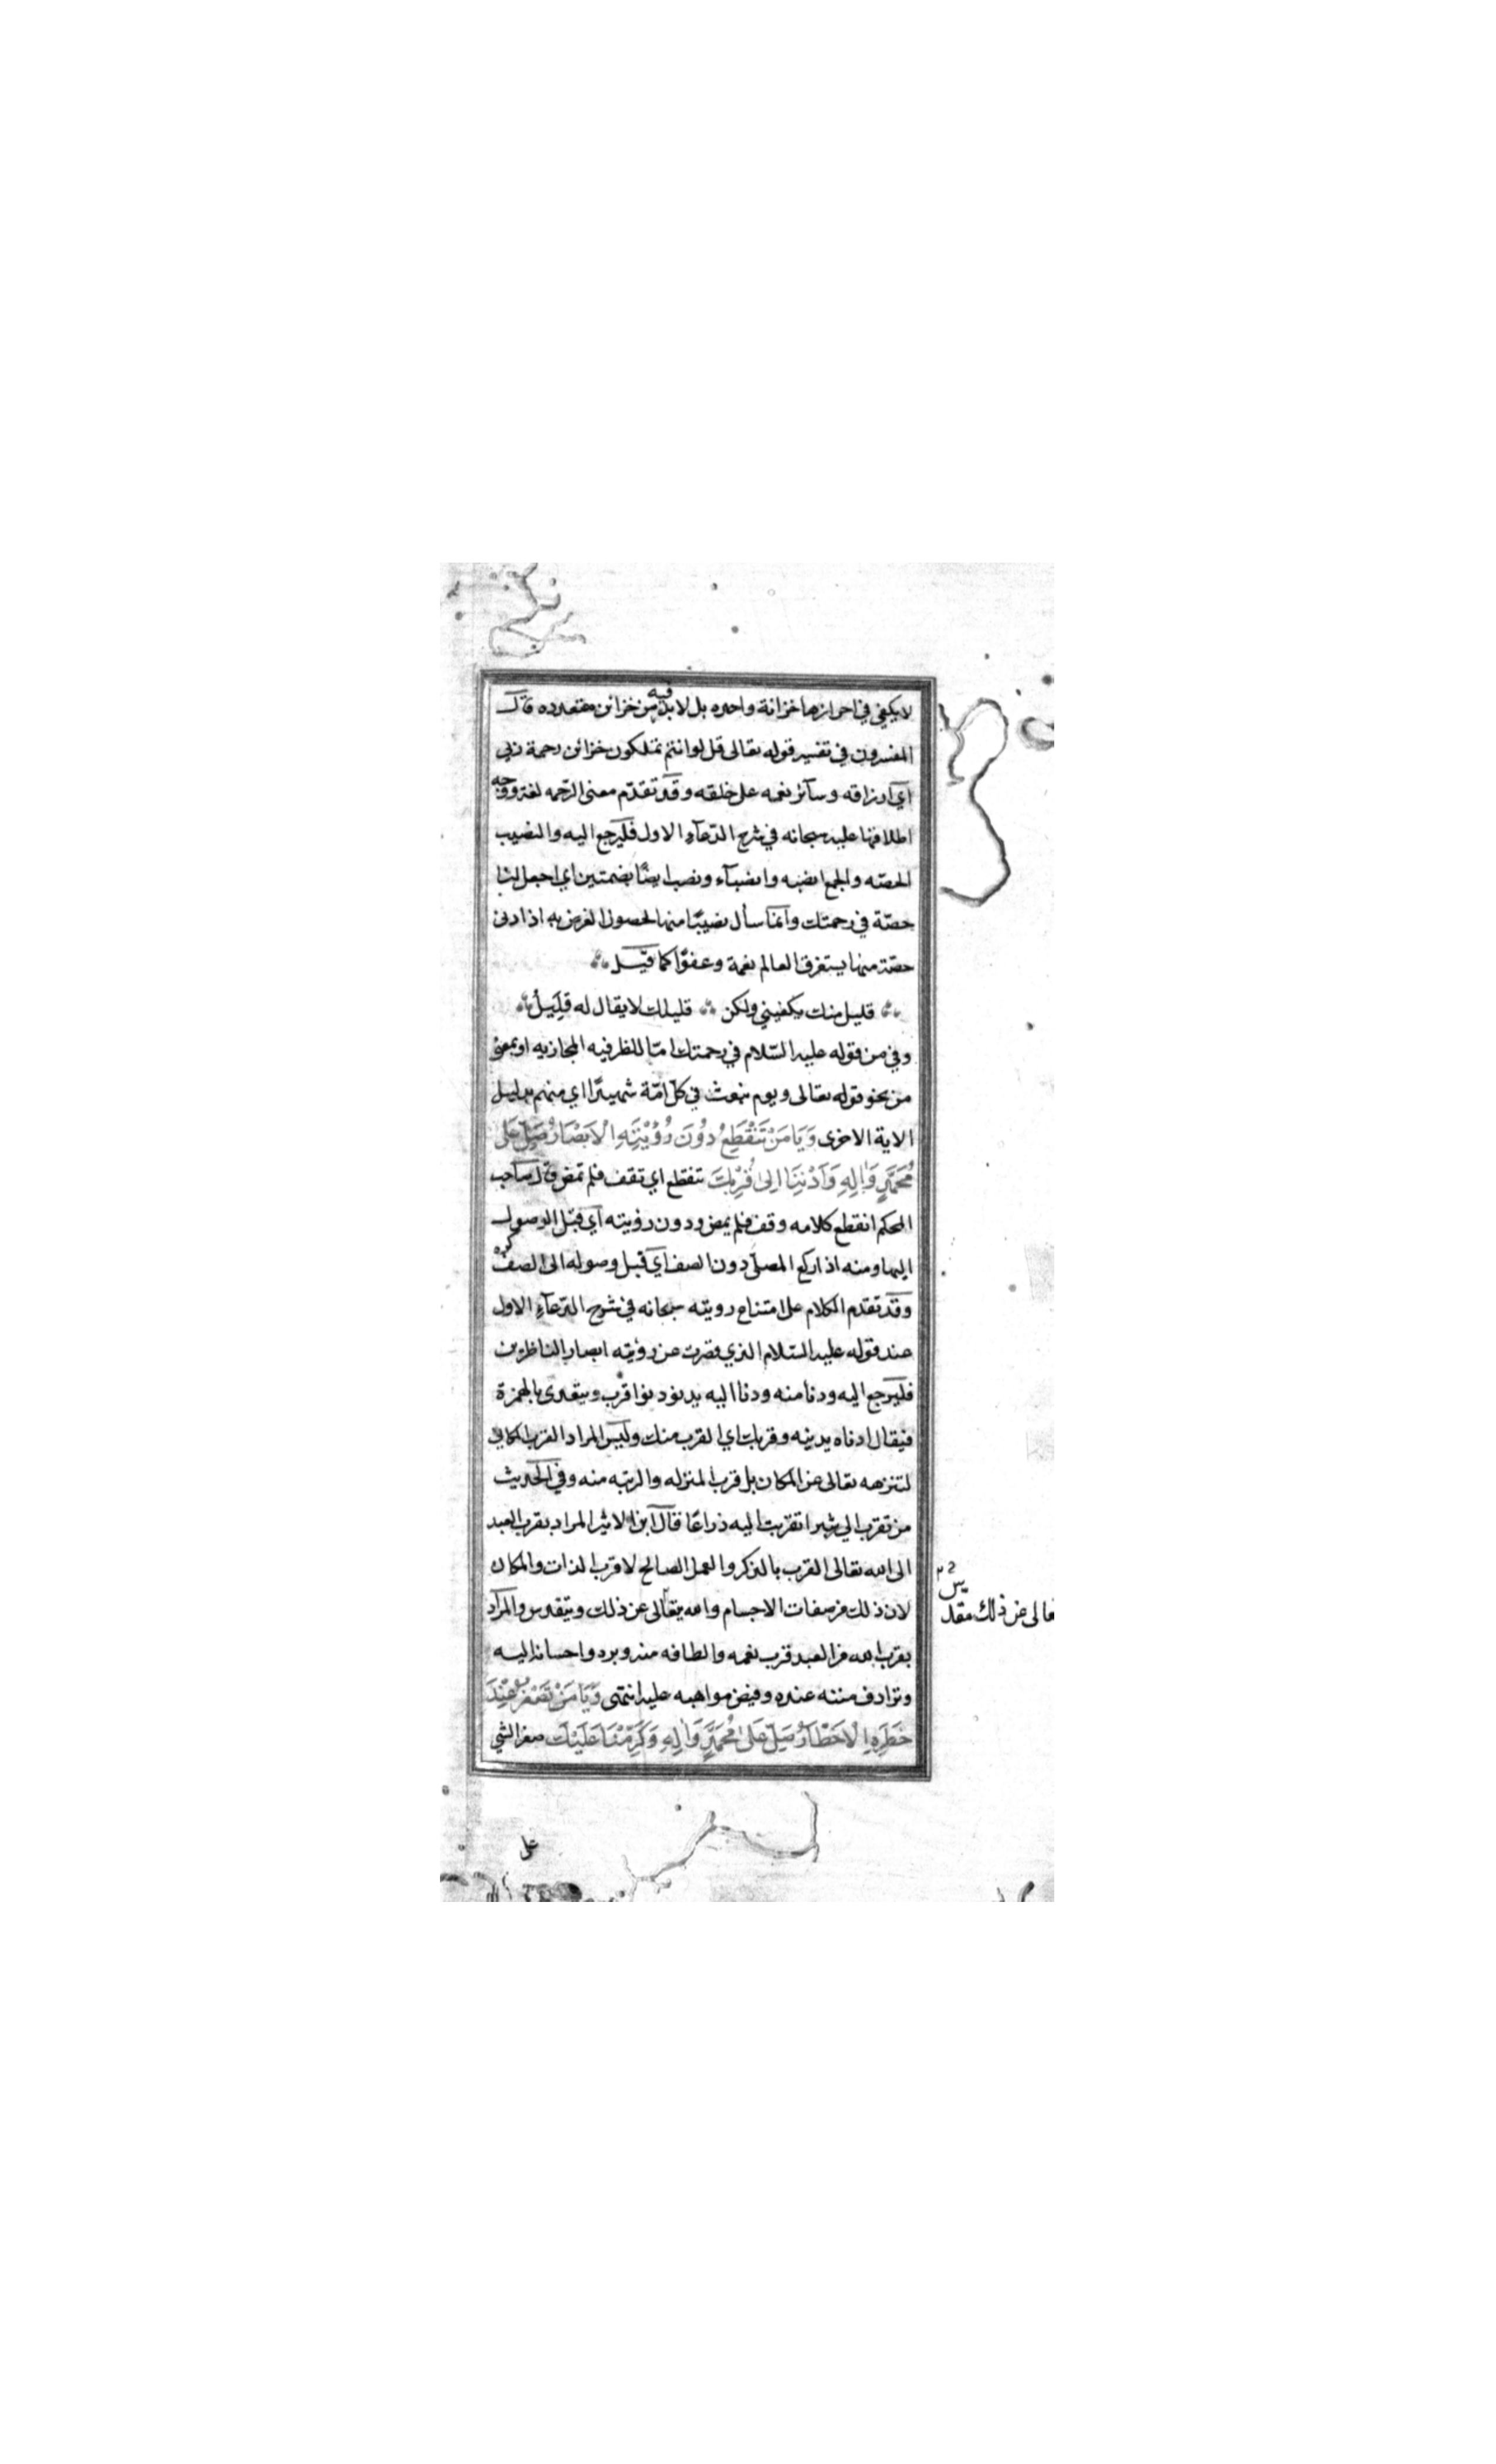 لا يكفي في احرازها خزانة واحده بل لا بد فيه من خزائن متعدده قال
المفسرون في تفسير قوله تعالى قل لو انتم تملكون خزائن رحمة ربي
اي ارزاقه وسآئر نعمه على خلقه وقد تقدّم معنى الرّحمه لغة ووجه
اطلاقها عليه سبحانه في شرح الدّعآء الاول فليرجع اليه والنصيب
الحصّه والجمع انصبه وانصبآء ونصب ايضًا بضمتين اي اجعل لنا
حصّة في رحمتك وانما سأل نصيبًا منها لحصول الغرض به اذ ادنى
حصّة منها يستغرق العالم نعمة وعفوًا كما قيل
قليل منك يكفيني ولكن قليلك لا يقال له قَلِيلُ
وفي من قوله عليه السّلام في رحمتك امّا للظرفيه المجازيه او بمعنى
من نحو قوله تعالى ويوم نبعث في كلّ امّة شهيدًا اي منهم بدليل
الاية الاخرى وَيَا مَنْ تَنْقَطِعُ دُونَ رُؤْيَتِهِ الْاَبْصَارُ صَلِّ عَلى
مُحَمَّدٍ وَاٰلِهِ وَاَدْنِنَا اِلىٰ قُرْبِكَ تنقطع اي تقف فلم تمض قال صاحب
المحكم انقطع كلامه وقف فلم يمض ودون رؤيته اي قبل الوصول
اليها ومنه اذا ركع المصلّي دون الصف اي قبل وصوله الى الصف كره
وقد تقدم الكلام على امتناع رويته سبحانه في شرح الدّعآء الاول
عند قوله عليه السّلام الذي قصرت عن رؤيته ابصار الناظرين
فليرجع اليه ودنا منه ودنا اليه يدنو دنوا قرب ويتعدى بالهمزة
فيقال ادناه يدنيه وقربك اي القرب منك وليس المراد القرب المكاني
لتنزهه تعالى عن المكان بل قرب المنزله والرتبه منه وفي الحديث
من تقرب الي شبرا تقربت اليه ذراعًا قال ابن الاثير المراد بقرب العبد
الى الله تعالى القرب بالذكر والعمل الصالح لا قرب الذات والمكان
لان ذلك من صفات الاجسام والله يتعالى عن ذلك ويتقدس والمراد
بقرب الله من العبد قرب نعمه والطافه منه وبره واحسانه اليه
وترادف مننه عنده وفيض مواهبه عليه انتهى وَيَا مَنْ تَصْغُرُ عِنْدَ
خَطَرِهِ الْاَخْطَارُ صَلِّ عَلىٰ مُحَمَّدٍ وَاٰلِهِ وَكَرِّمْنَا عَلَيْكَ صغر الشي
تعالى عن ذلك مقدس
على